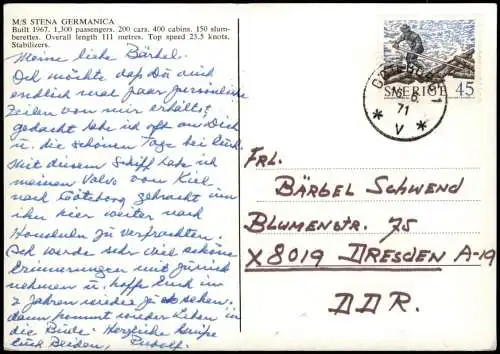 M/S STENA GERMANICA
Built 1967. 1,300 passengers. 200 cars. 400 cabins. 150 slum-
berettes. Overall length 111 metres. Top speed 23.5 knots.
Stabilizers.
Meine liebe Bärbel.
Ich möchte daß Du auch
endlich mal paar persönliche
Zeilen von mir erhälts,
gedacht habe ich oft an Dich
u. die schönen Tage bei Euch.
Mit diesem Schiff habe ich
meinen Volvo von Kiel
nach Göteborg gebracht um
ihn hier weiter nach
Honolulu zu verfrachten.
Ich werde sehr viel schöne
Erinnerungen mit zurück
nehmen u. hoffe Euch in
2 Jahren wieder zu sehen.
dann kommt wieder Leben in
die Bude. Herzliche
Euch Beiden, Rudolf.
SVERIGE 45
GÖTEBORG 1
6.
71
* V *
FRL.
BÄRBEL SCHWEND
BLUMENSTR. 75
X 8019 DRESDEN A-19
DDR.